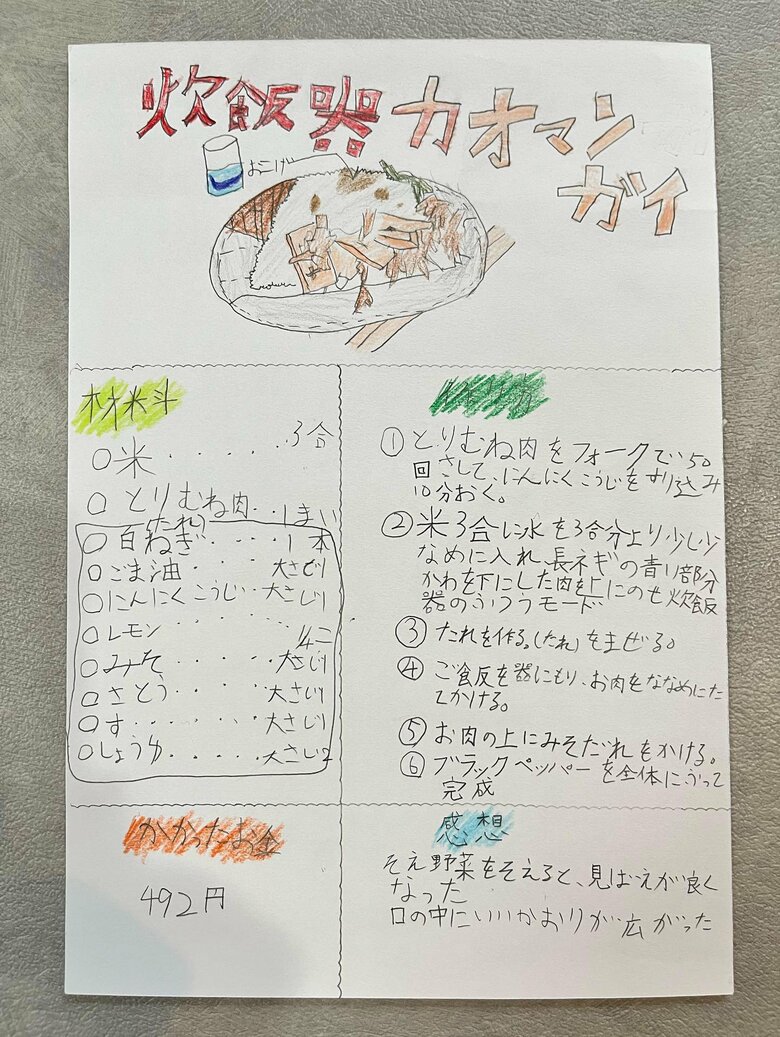 炊飯器カオマン
ガイ
おこげ
材料
○米・・・・・3合
○とりむね肉・・・1まい
(たれ)
○白ねぎ・・・・1本
○ごま油 大さじ1
○にんにくこうじ・・大さじ1
○レモン 1/4こ
○みそ・・・・・大さじ1
○さとう・・・・大さじ1
○す・・・・・・大さじ1
○しょうゆ・・・・・大さじ2
かかったお金
492円
①とりむね肉をフォークで50
回さして、にんにくこうじをすり込み
10分おく。
②米3合に水を3合分より少し少
なめに入れ、長ネギの青い部分
かわを下にした肉を上にのせ炊飯
器のふつうモード
③たれを作る。(たれ)をまぜる。
④ご飯を器にもり、お肉をななめにた
てかける。
⑤お肉の上にみそだれをかける。
⑥ブラックペッパーを全体にふって
完成
感想
そえ野菜をそえると、見ばえが良く
なった
口の中にいいかおりが広がった